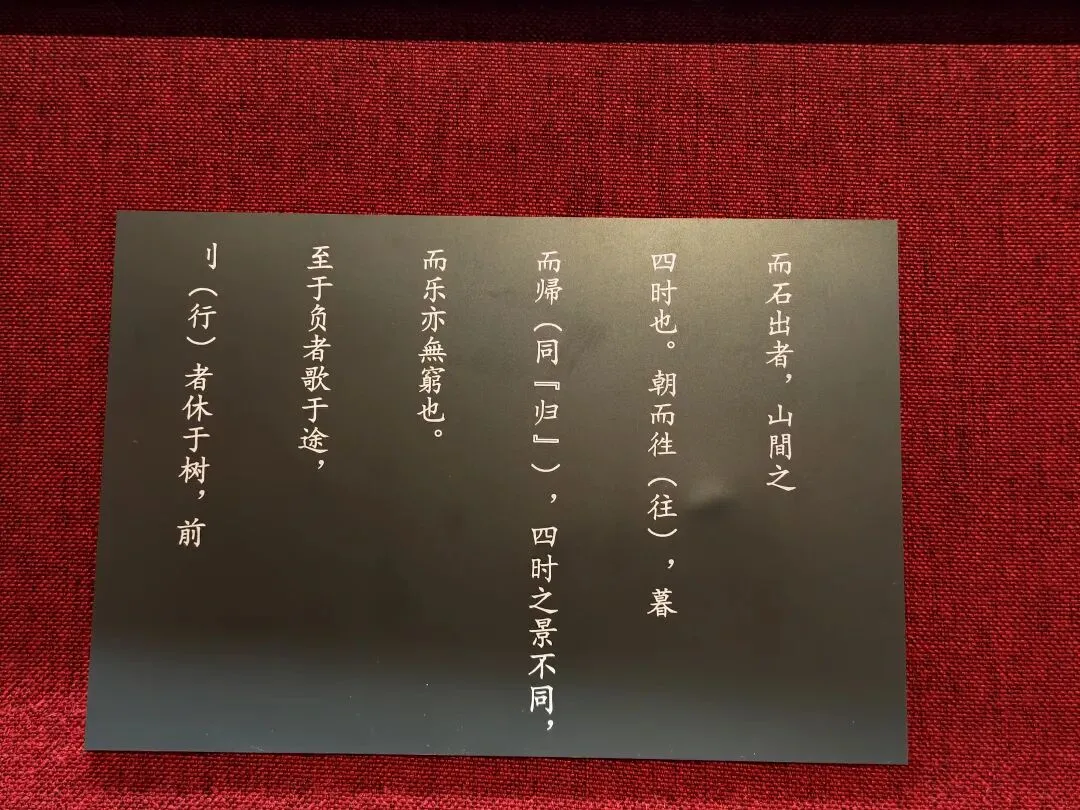 而石出者，山間之
四时也。朝而徃（往），暮
而帰（同『归』），四时之景不同，
而乐亦無窮也。
至于负者歌于途，
刂（行）者休于树，前